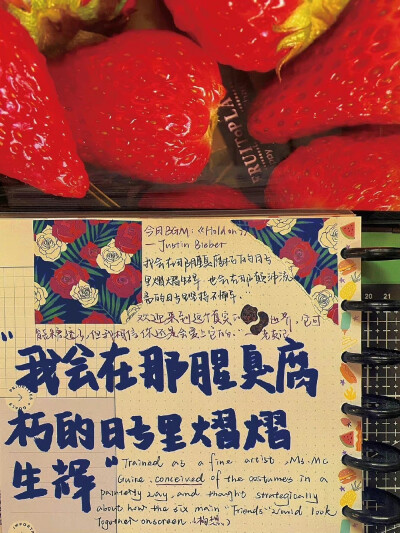 FRUITOPLA
今日BGM:《Hold on》
— Justin Bieber
我会在那腥臭腐朽的日子
里熠熠生辉，也会在那颠沛流
离的日子里坚持不懈。
欢迎来到这个真实的世界，它可
能糟透了，但我相信你还是会爱上它的。
20 21
“我会在那腥臭腐
朽的日子里熠熠
生辉”
Trained as a fine artist, Ms. Mc
Guire conceived of the costumes in a
painterly way, and thought strategically
about how the six main "Friends" would look
together onscreen. (构想)